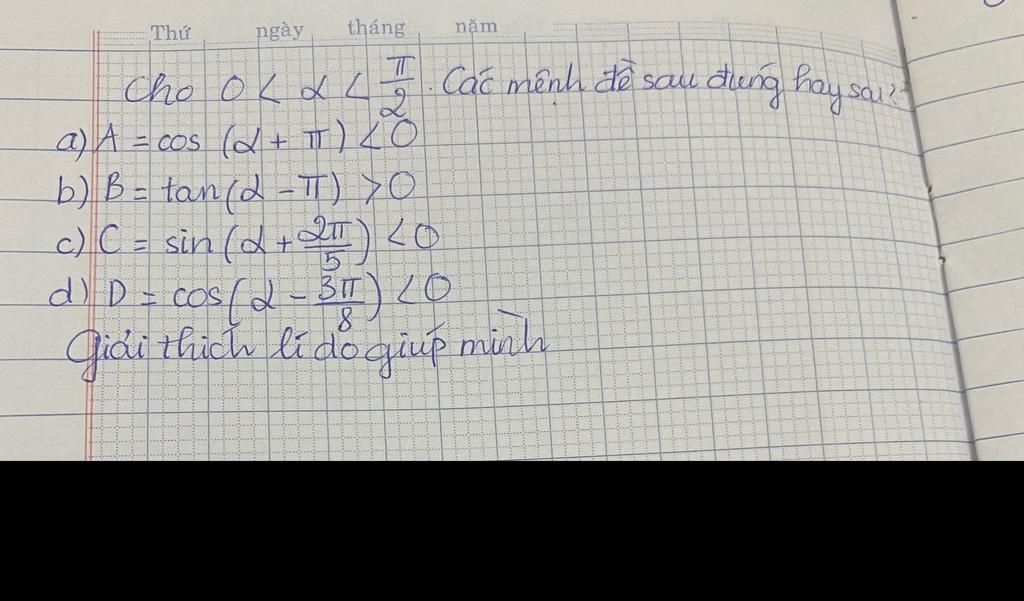 Thứ ngày tháng năm
Cho 0 < α < π/2. Các mệnh đề sau đúng hay sai?
a) A = cos (α + π) < 0
b) B = tan(α - π) > 0
c) C = sin(α + 2π/5) < 0
d) D = cos(α - 3π/8) < 0
Giải thích lí do giúp mình